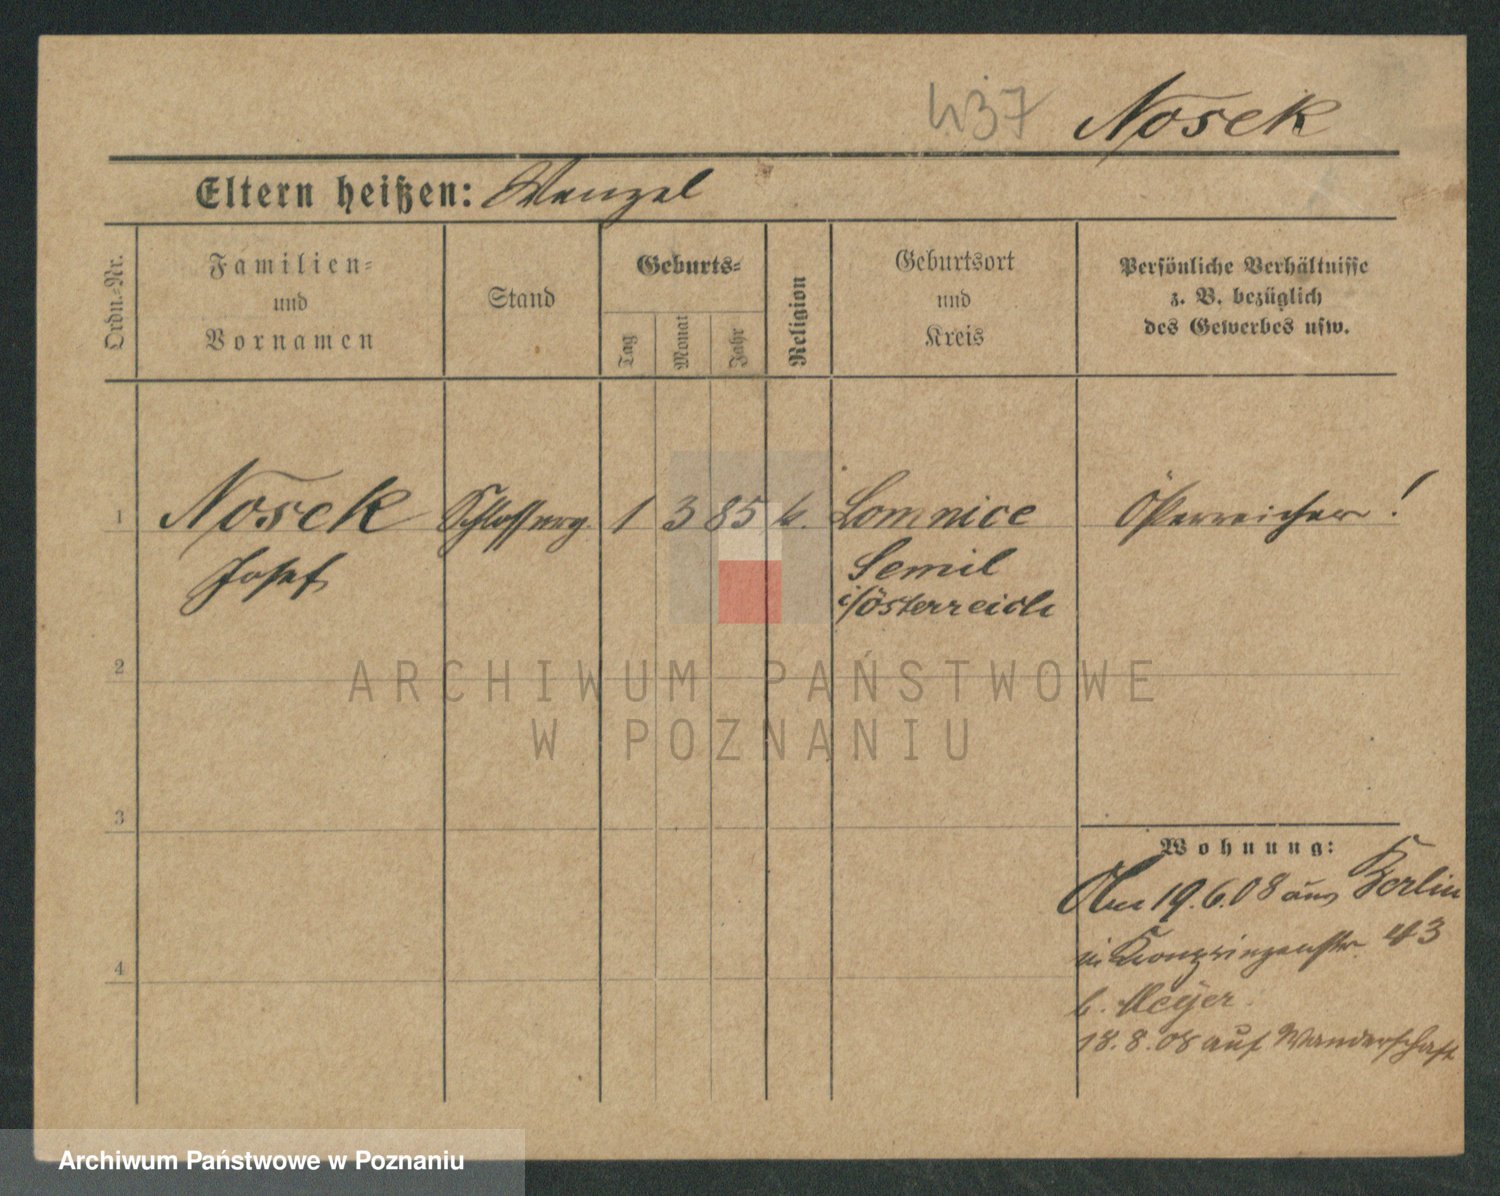 437 Nosek
Eltern heißen: Wenzel
Ordn.-Nr.
Familien-
und
Vornamen
Stand
Geburts-
Tag
Monat
Jahr
Religion
Geburtsort
und
Kreis
Persönliche Verhältnisse
z. B. bezüglich
des Gewerbes usw.
1 Nosek Schlosserg. 1 3 85 k. Lomnice Österreicher!
Josef Semil
i/österreich
2
3
4
Wohnung:
19.6.08 aus Berlin
in Kronprinzenstr. 43
b. Meyer.
18.8.08 auf Wanderschaft
ARCHIWUM PAŃSTWOWE
W POZNANIU
Archiwum Państwowe w Poznaniu